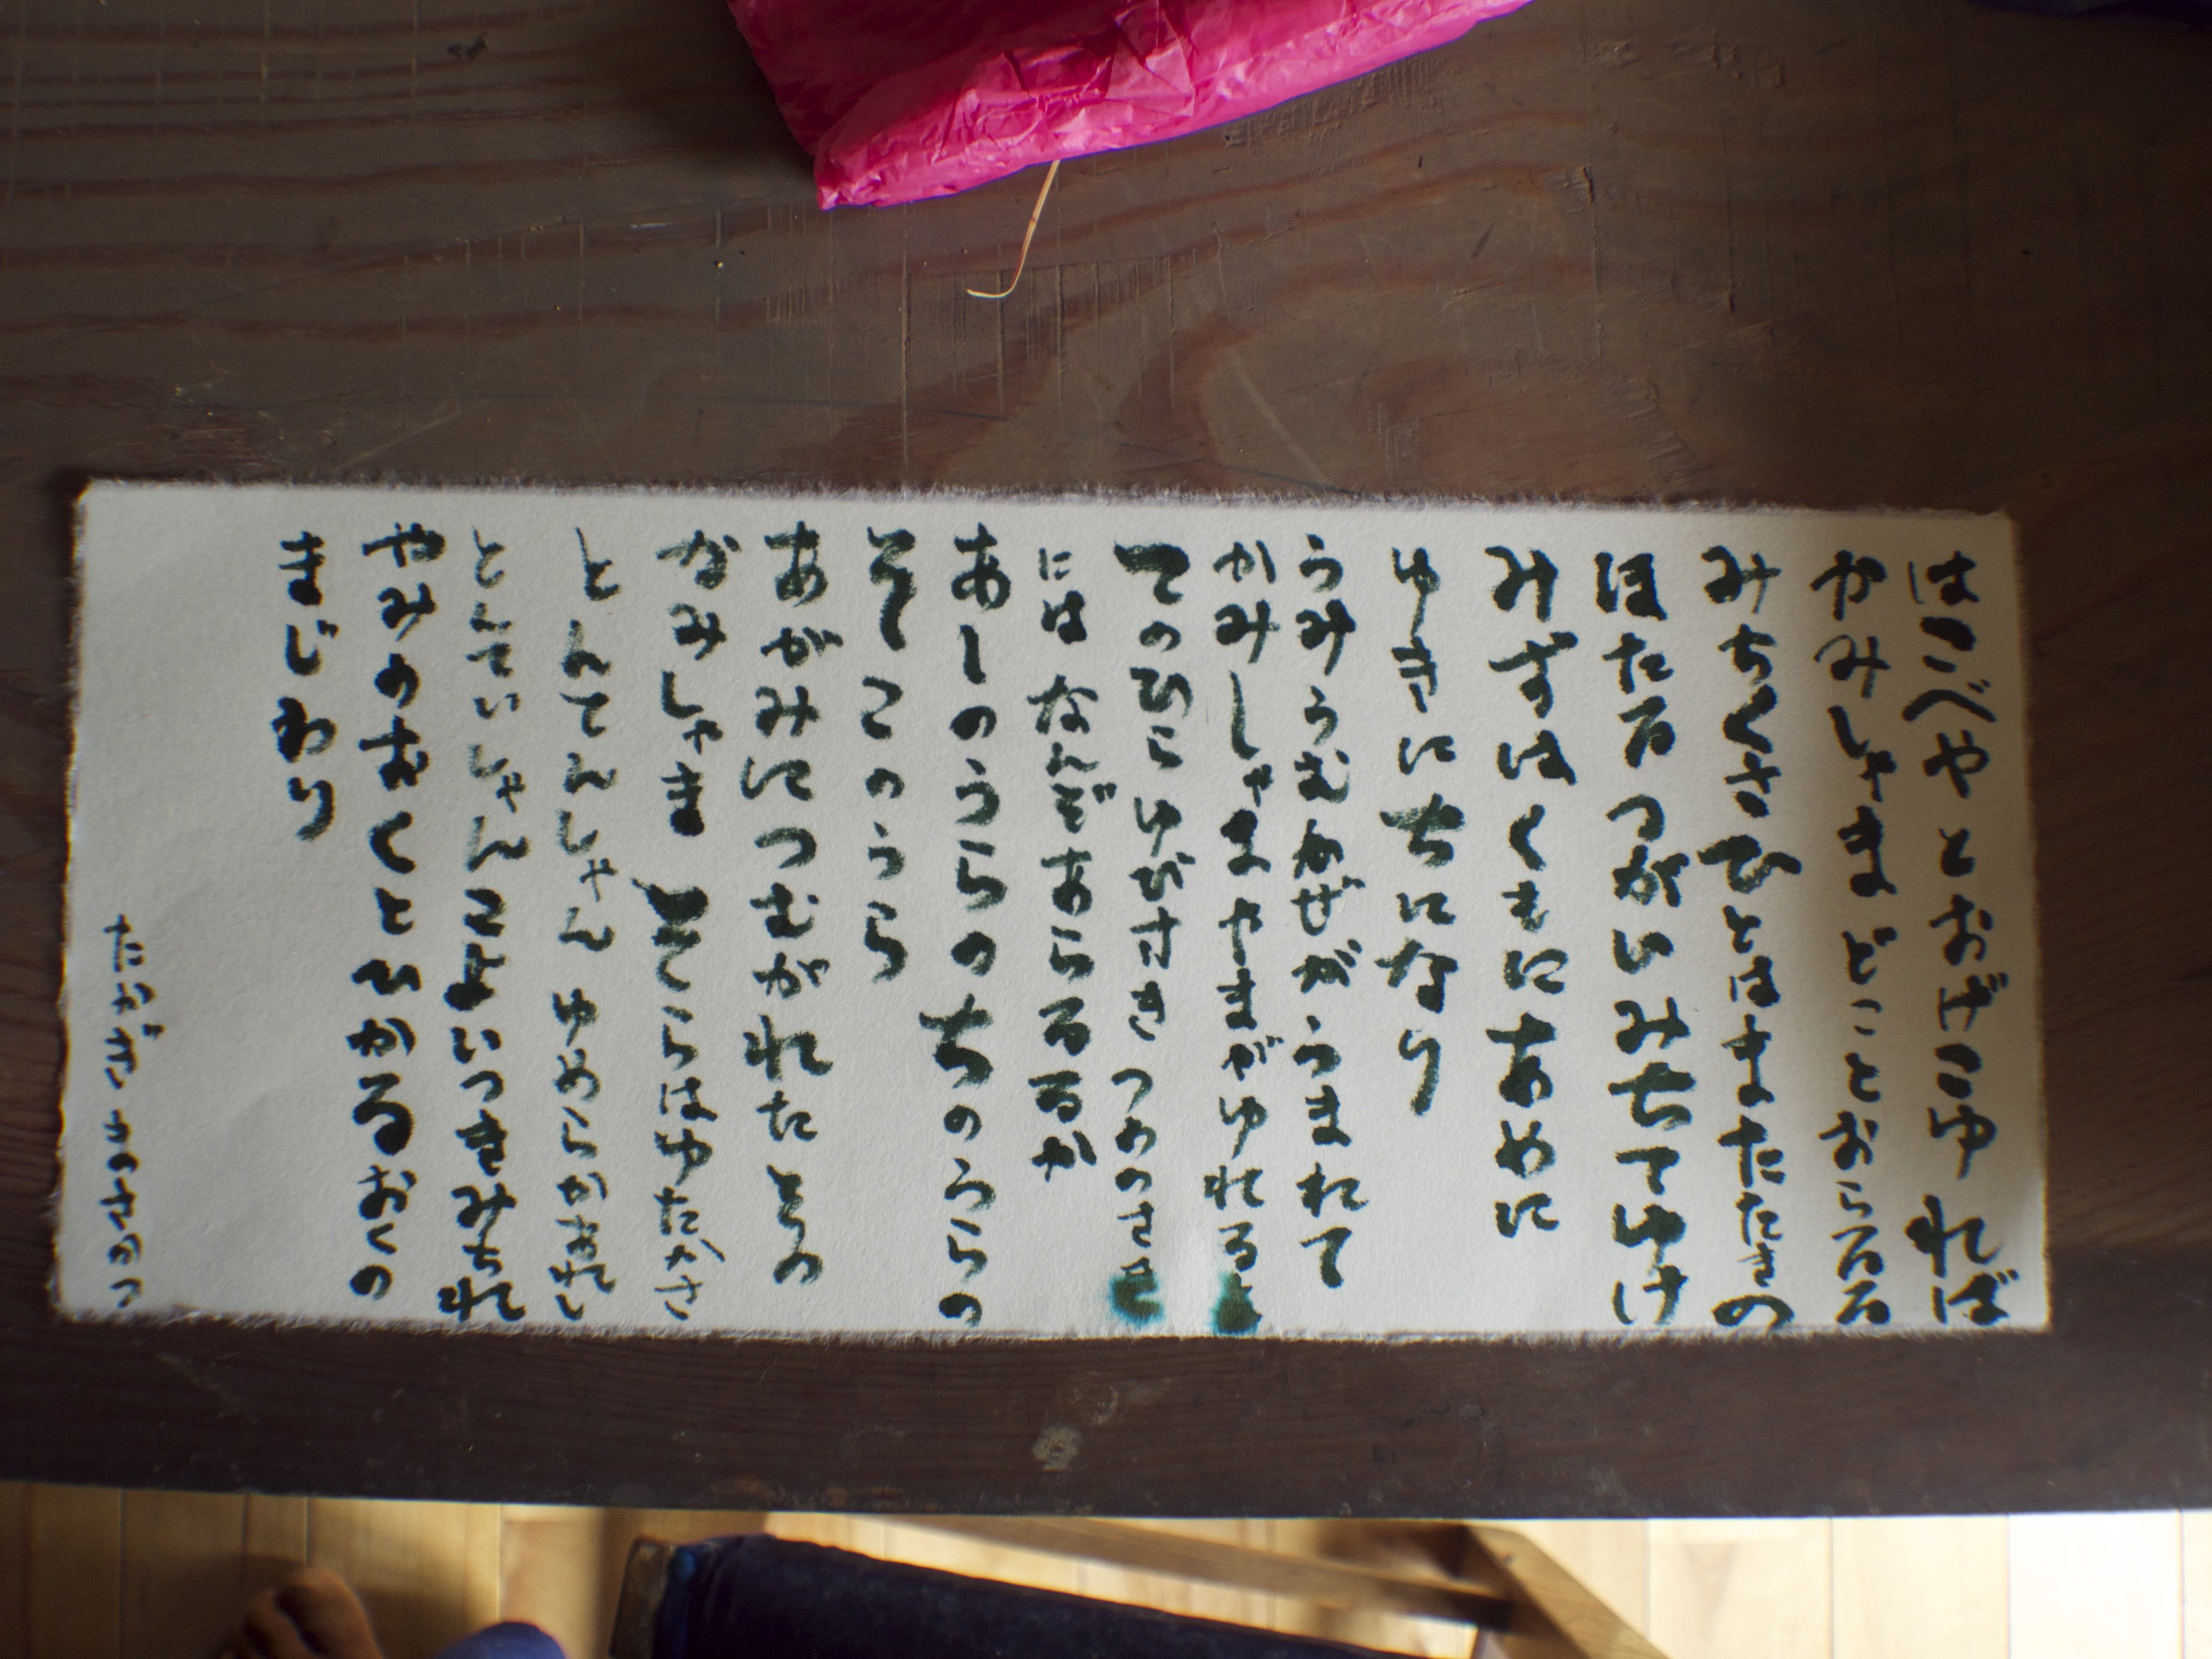 はこべやとおげこゆれば
かみしゃまどことおらるる
みちくさひとはまたたきの
ほたるつがいみちてゆけ
みずはくもにあめに
ゆきにちになり
うみうむかぜがうまれて
かみしゃまやまがゆれると
てのひらゆびさきつめのさき
にはなんぞあらるるか
あしのうらのちのうらの
そこのうら
あがみにつむがれたとの
なみしゃまそらはゆたかさ
とんてんしゃんゆめらかまれい
とんていしゃんこよいつきみちれ
やみのおくとひかるおくの
まじわり
たかぎまさかつ